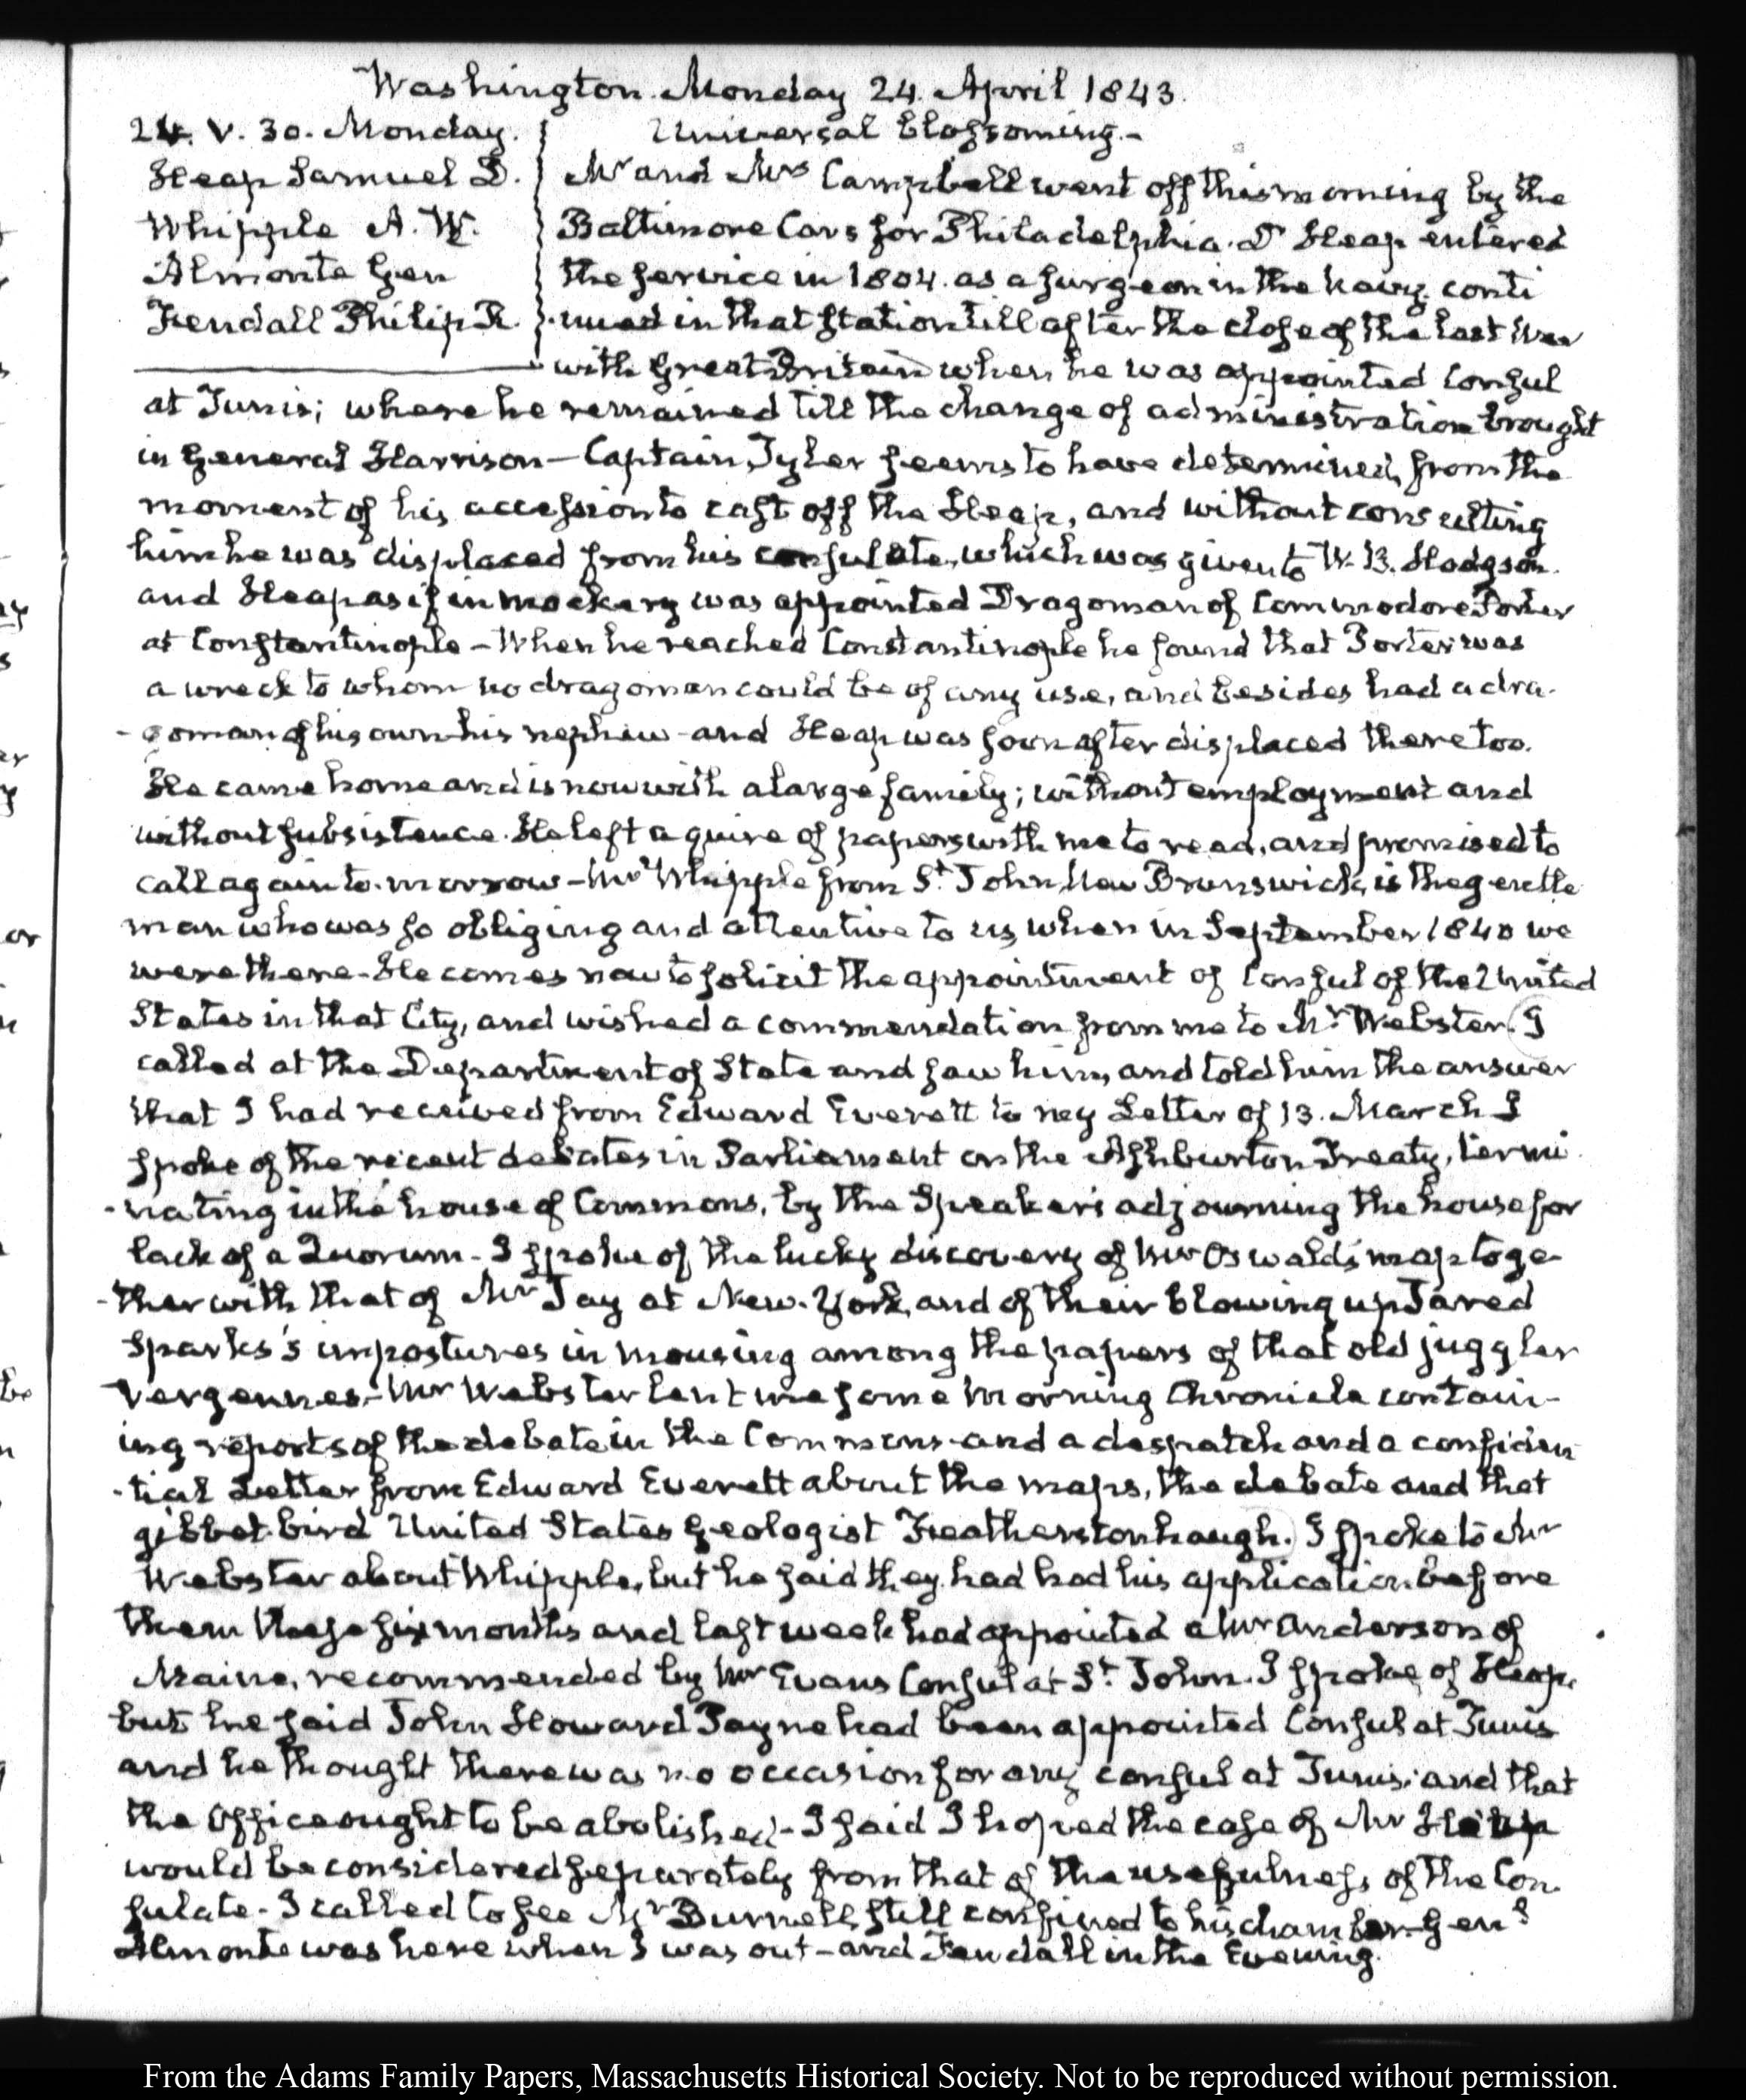 Washington. Monday 24. April 1843.
24. V. 30. Monday.
Heap Samuel D.
Whipple A. W.
Almonte Gen
Fendall Philip R.
Universal blossoming.—
Mr and Mrs Campbell went off this morning by the
Baltimore Cars for Philadelphia. Dr Heap entered
the service in 1804. as a surgeon in the Navy. conti
-nued in that station till after the close of the last War
with Great Britain when he was appointed Consul
at Tunis; where he remained till the change of administration brought
in General Harrison — Captain Tyler seems to have determined, from the
moment of his accession to cast off the Heap, and without consulting
him he was displaced from his consulate, which was given to W. B. Hodgson.
and Heap as if in mockery was appointed Dragoman of Commodore Porter
at Constantinople — When he reached Constantinople he found that Porter was
a wreck to whom no dragoman could be of any use, and besides had a dra-
-goman of his own his nephew - and Heap was soon after displaced there too.
He came home and is now with a large family; without employment and
without subsistence. He left a quire of papers with me to read, and promised to
call again to-morrow — Mr Whipple from St. John, New Brunswick, is the gentle
man who was so obliging and attentive to us, when in September 1840 we
were there - He comes now to solicit the appointment of Consul of the United
States in that City, and wished a commendation from me to Mr Webster. I
called at the Department of State and saw him, and told him the answer
that I had received from Edward Everett to my Letter of 13. March I
spoke of the recent debates in Parliament on the Ashburton Treaty, termi
-nating in the house of Commons, by the Speaker's adjourning the house for
lack of a Quorum - I spoke of the lucky discovery of Mr Oswald's map toge-
-ther with that of Mr Jay at New-York, and of their blowing up Jared
Sparks's impostures in mousing among the papers of that old juggler
Vergennes.- Mr Webster lent me some Morning Chronicle contain-
ing reports of the debate in the Commons and a despatch and a confiden
-tial Letter from Edward Everett about the maps, the debate and that
gibbet-bird United States Geologist Featherstonhaugh. I spoke to Mr
Webster about Whipple, but he said they had had his application before
them these six months and last week had appointed a Mr Anderson of
Maine, recommended by Mr Evans Consul at St. John. I spoke of Heap,
but he said John Howard Payne had been appointed Consul at Tunis
and he thought there was no occasion for any consul at Tunis; and that
the Office ought to be abolished - I said I hoped the case of Mr Heap
would be considered separately from that of the usefulness of the Con
sulate - I called to see Mr Burnell, still confined to his chamber - Genl
Almonte was here when I was out — and Fendall in the Evening.
From the Adams Family Papers, Massachusetts Historical Society. Not to be reproduced without permission.